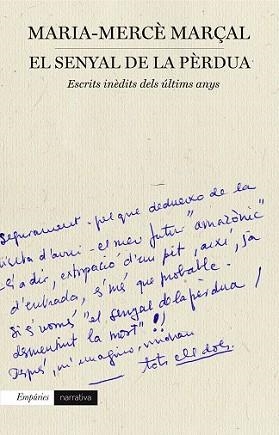 MARIA-MERCÈ MARÇAL
EL SENYAL DE LA PÈRDUA
Escrits inèdits dels últims anys
Segurament - pel que dedueixo de la
visita d'avui - el meu futur "amazònic"
- És a dir, extirpació d'un pit, així, ja
d'entrada, s'més que probable.
Si és només "el senyal de la pèrdua /
desmentint la mort"!!
Després, m'imagino, vindran
tots els dols.
Empúries narrativa